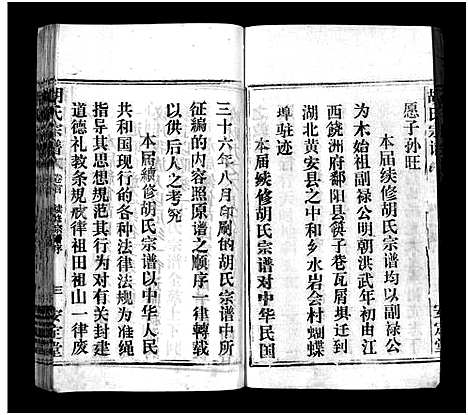 愿子孙旺
本届续修胡氏宗谱均以副禄公
为木始祖副禄公明朝洪武年初由江
西饶洲府鄱阳县筷子巷瓦屑埧迁到
湖北黄安县之中和乡水岩会村蝴蝶
埠驻迹
本届续修胡氏宗谱对中华民国
三十六年八月印刷的胡氏宗谱中所
征编的内容照原谱之顺序一律轉载
以供后人之考究
本届续修胡氏宗谱以中华人民
共和国现行的各种法律法规为准绳
指导其思想规范其行为对有关封建
道德礼教条规戒律祖田祖山一律废
胡氏宗谱
卷首
三
安定堂
胡氏宗谱
安定堂